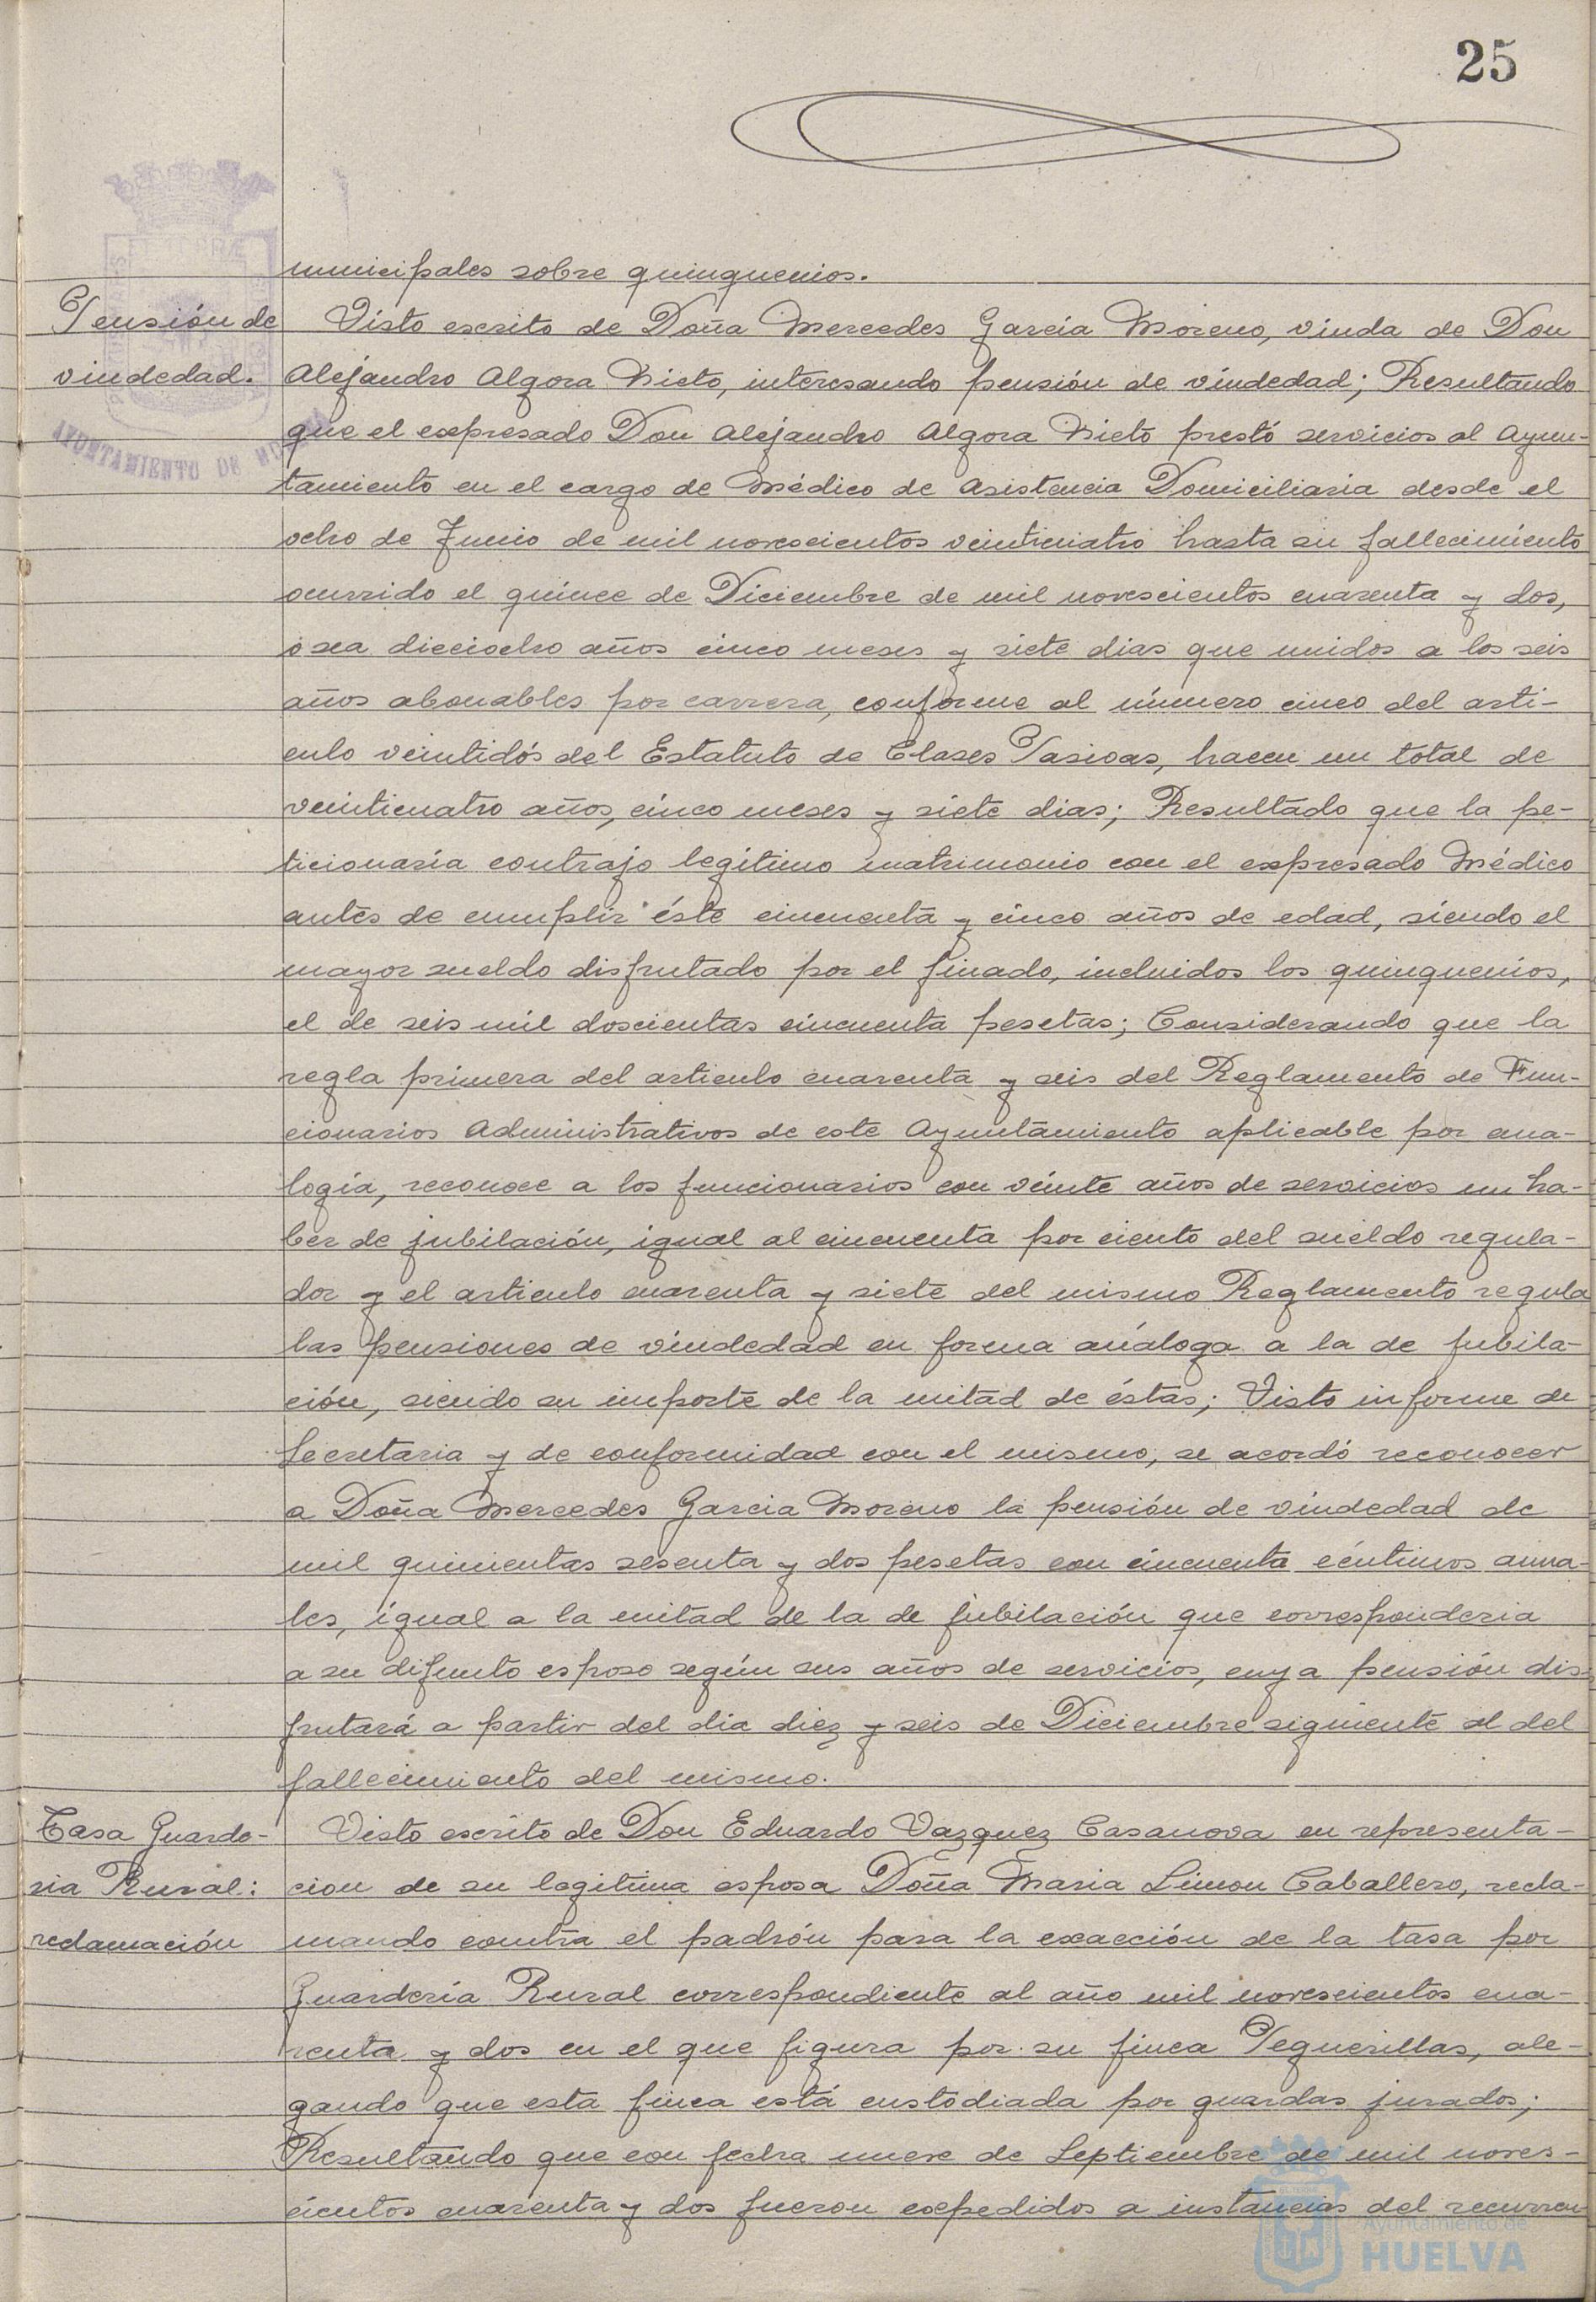 25
municipales sobre quinquenios.
Pensión de
viudedad.
Visto escrito de Doña Mercedes García Moreno, viuda de Don
Alejandro Algora Nieto, interesando pensión de viudedad; Resultando
que el expresado Don Alejandro Algora Nieto prestó servicios al Ayun-
tamiento en el cargo de Médico de Asistencia Domiciliaria desde el
ocho de Junio de mil novescientos veinticuatro hasta su fallecimiento
ocurrido el quince de Diciembre de mil novescientos cuarenta y dos,
o sea dieciocho años cinco meses y siete dias que unidos a los seis
años abonables por carrera, conforme al número cinco del arti-
culo veintidós del Estatuto de Clases Pasivas, hacen un total de
veinticuatro años, cinco meses y siete dias; Resultado que la pe-
ticionaria contrajo legítimo matrimonio con el expresado Médico
antes de cumplir éste cincuenta y cinco años de edad, siendo el
mayor sueldo disfrutado por el finado, incluidos los quinquenios,
el de seis mil doscientas cincuenta pesetas; Considerando que la
regla primera del articulo cuarenta y seis del Reglamento de Fun-
cionarios Administrativos de este Ayuntamiento aplicable por ana-
logía, reconoce a los funcionarios con veinte años de servicios un ha-
ber de jubilación, igual al cincuenta por ciento del sueldo regula-
dor y el articulo cuarenta y siete del mismo Reglamento regula
las pensiones de viudedad en forma análoga a la de jubila-
ción, siendo su importe de la mitad de éstas; Visto informe de
Secretaria y de conformidad con el mismo, se acordó reconocer
a Doña Mercedes Garcia Moreno la pensión de viudedad de
mil quinientas sesenta y dos pesetas con cincuenta céntimos anua-
les, igual a la mitad de la de jubilación que corresponderia
a su difunto esposo según sus años de servicios, cuya pensión dis-
frutará a partir del dia diez y seis de Diciembre siguiente al del
fallecimiento del mismo.
Tasa Guarde-
ria Rural:
reclamación
Visto escrito de Don Eduardo Vazquez Casanova en representa-
cion de su legitima esposa Doña Maria Limon Caballero, recla-
mando contra el padrón para la exacción de la tasa por
Guardería Rural correspondiente al año mil novescientos cua-
renta y dos en el que figura por su finca Peguerillas, ale-
gando que esta finca está custodiada por guardas jurados;
Resultando que con fecha nueve de Septiembre de mil noves-
cientos cuarenta y dos fueron expedidos a instancias del recurren-
AYUNTAMIENTO DE
Ayuntamiento de
HUELVA